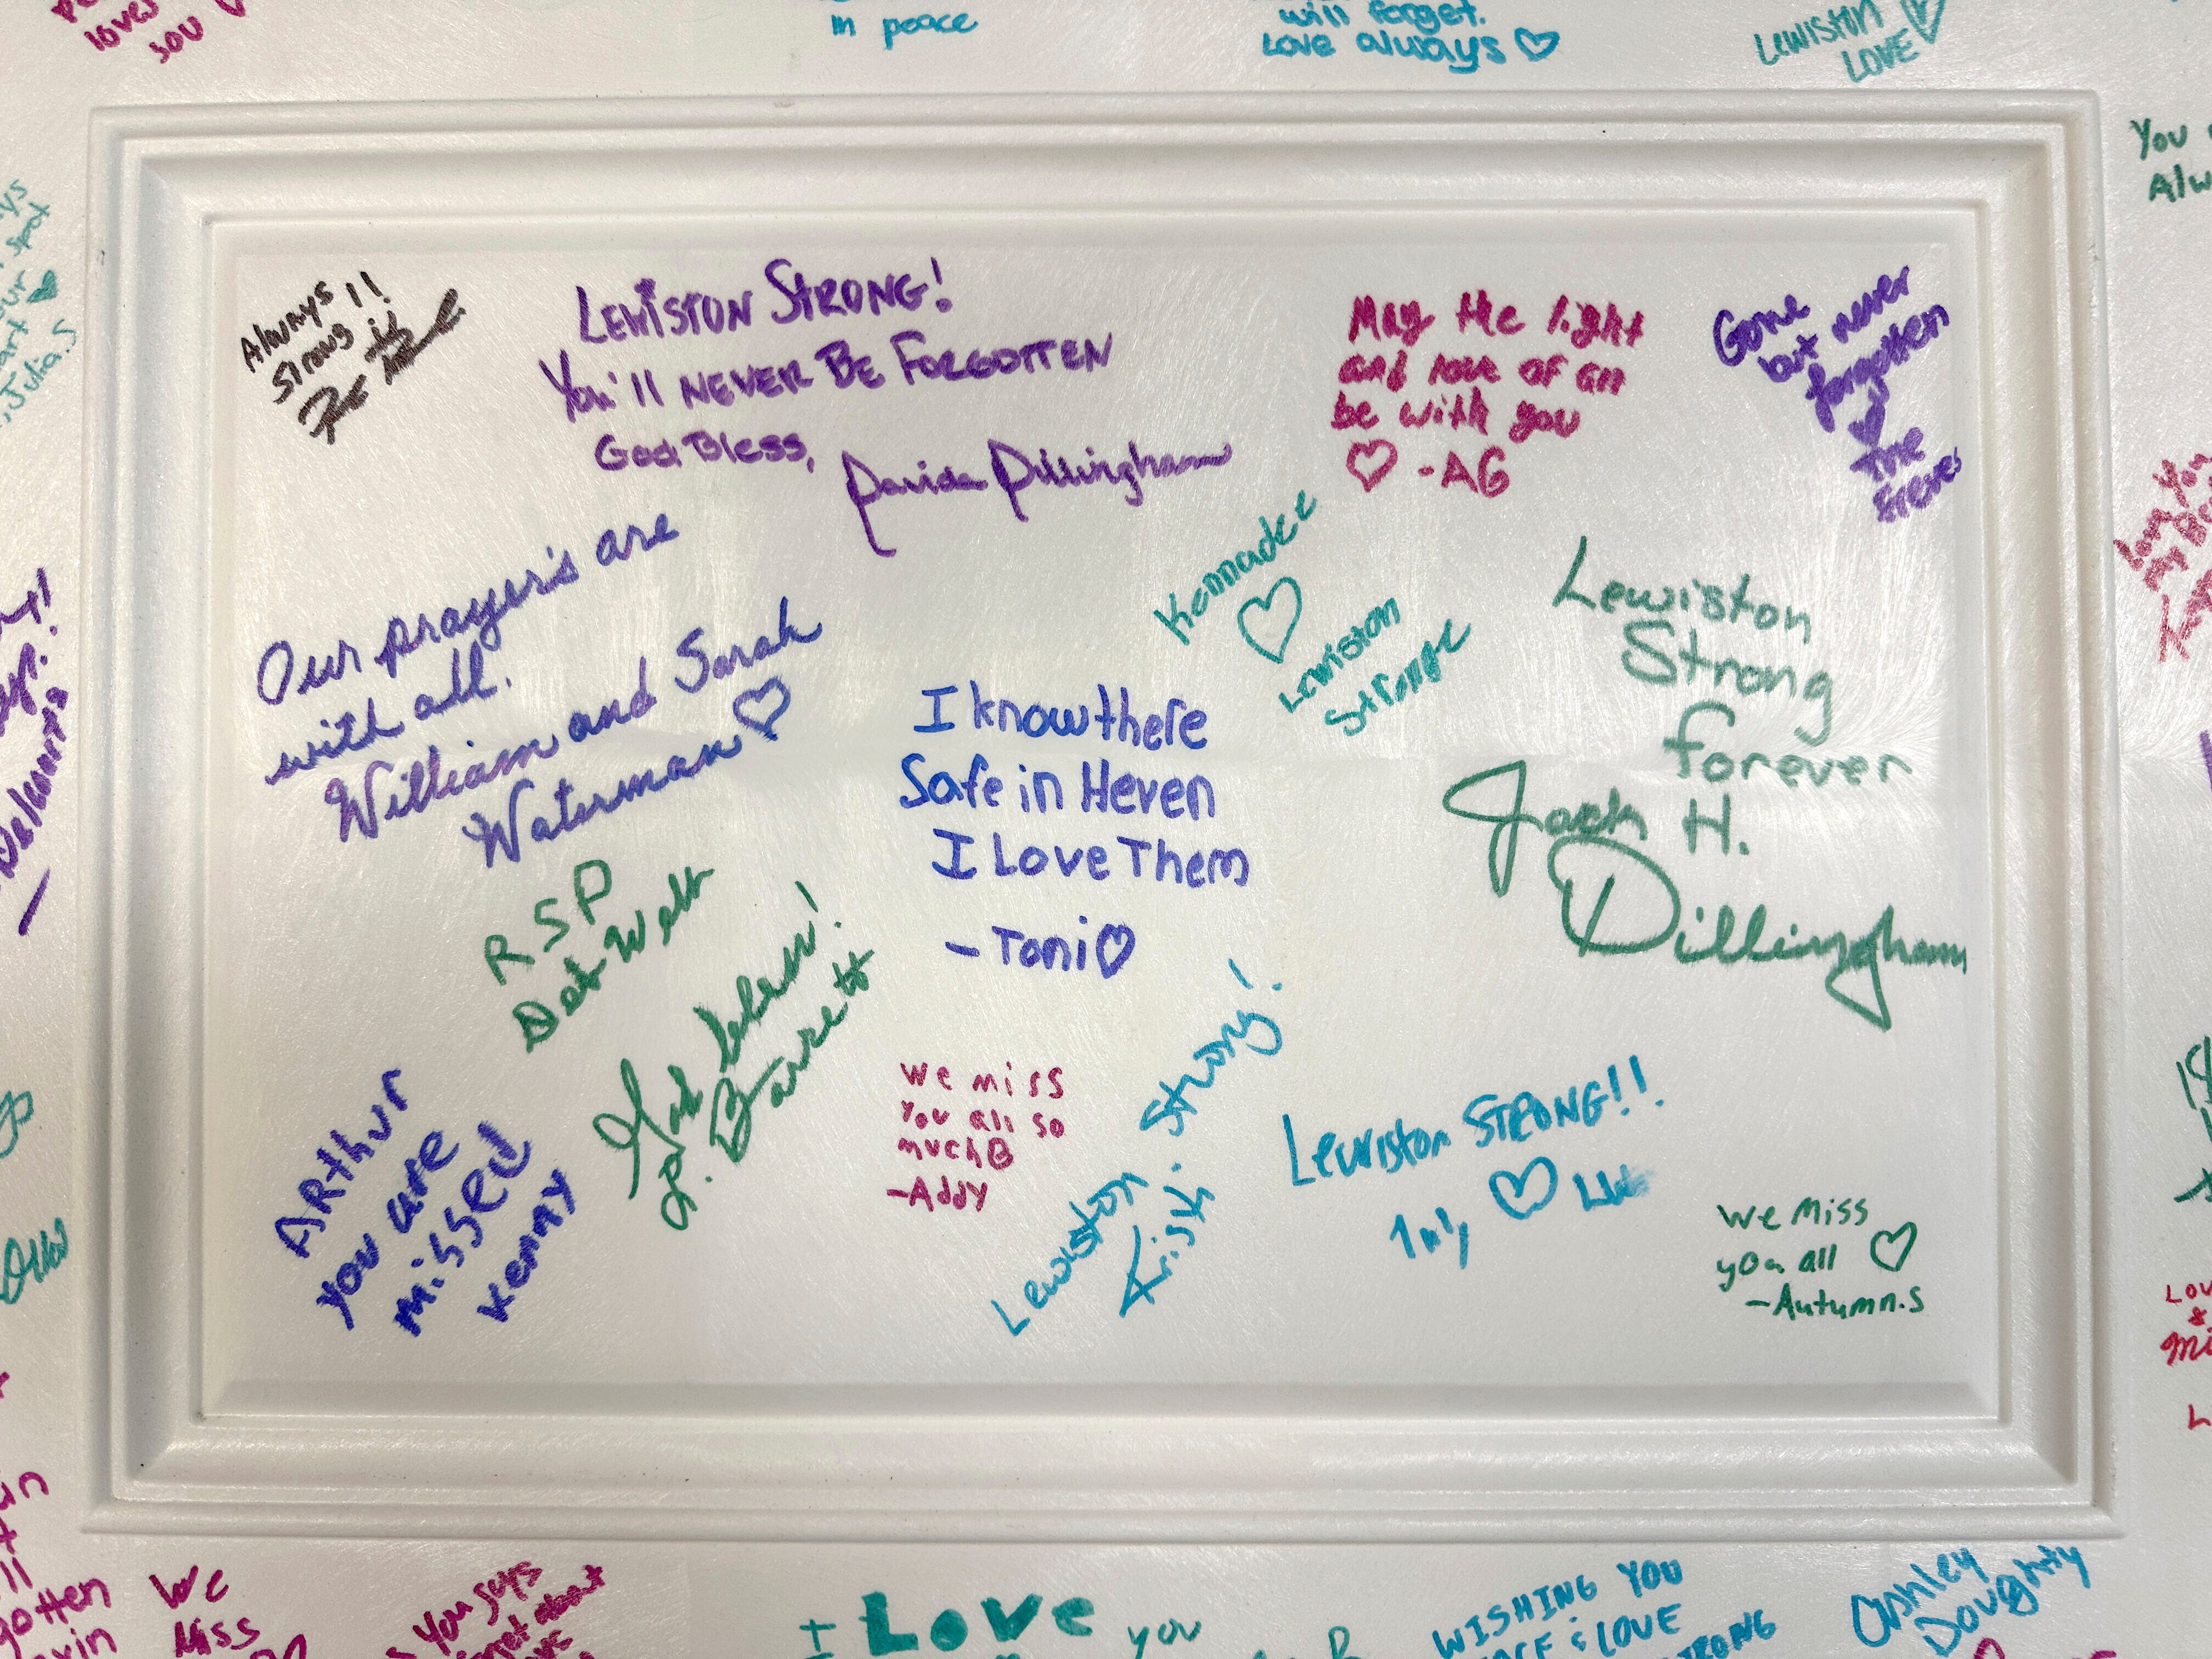 loves
you
in peace
will forget.
Love always
Lewiston
LOVE
You
Always
strong!!
LEWISTON STRONG!
You'll NEVER BE FORGOTTEN
God Bless,
Davida Dillingham
May the light
and love of all
be with you
-AG
Gone
but never
forgotten
The
Our prayer's are
with all.
William and Sarah
Waterman
Kennadee
Lewiston
Stronge
Lewiston
Strong
forever
Jack H.
Dillingham
I know there
Safe in Heven
I Love Them
- Toni
R S P
God bless!
Barrett
ARthur
you are
missed
Kenny
we miss
You all so
much
-Addy
Lewiston Strong!
Kristi.
Lewiston STRONG!!
We Miss
you all
-Autumn.S
Julia.S
We
Miss
you guys
I Love you
WISHING YOU
LOVE
Ashley
Doughty